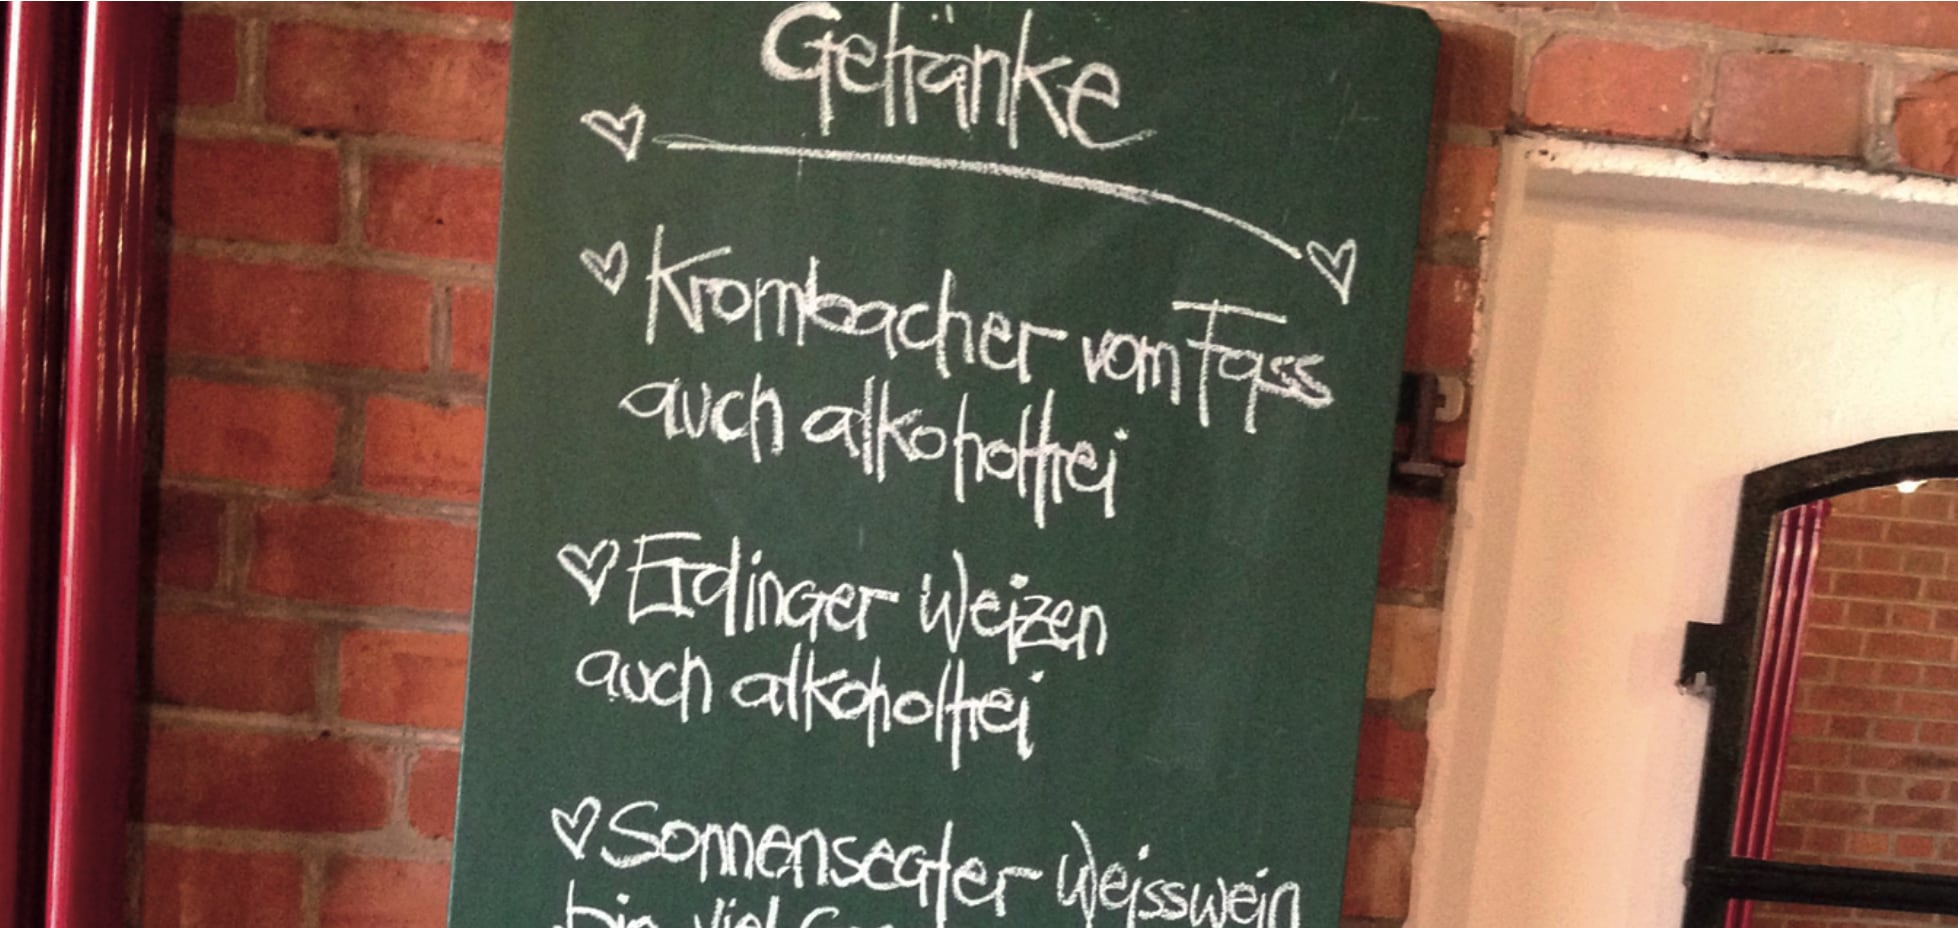 Getränke
Krombacher vom Fass
auch alkoholfrei
Erdinger Weizen
auch alkoholfrei
Sonnenseater Weisswein
bin viel